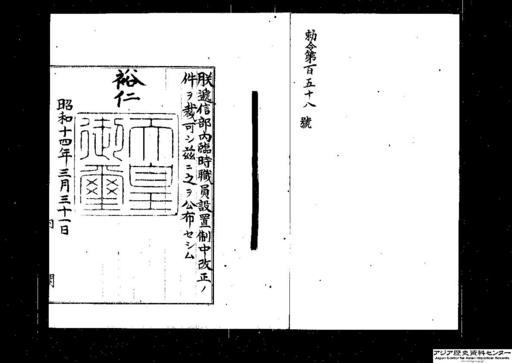 勅令第百五十八號
朕遞信部內臨時職員設置制中改正ノ
件ヲ裁可シ茲ニ之ヲ公布セシム
裕仁
天皇
御璽
昭和十四年三月三十一日
內閣
アジア歴史資料センター
Japan Center for Asian Historical Records